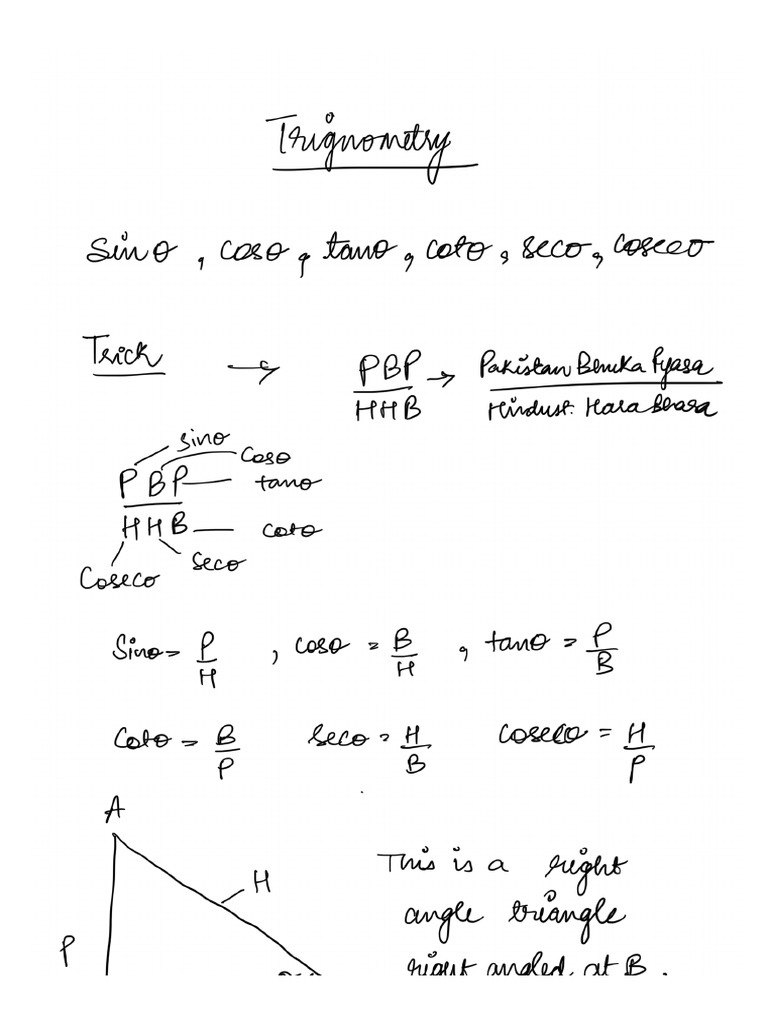 Trignometry
Sinθ , cosθ , tanθ , cotθ , secθ , cosecθ
Trick → PBP/HHB → Pakistan Bhuka Pyasa / Hindust. Hara Bharа
sinθ
cosθ
PBP tanθ
HHB cotθ
secθ
Cosecθ
Sinθ = P/H , cosθ = B/H , tanθ = P/B
Cotθ = B/P secθ = H/B cosecθ = H/P
A
This is a right
H
angle triangle
P
right angled at B.